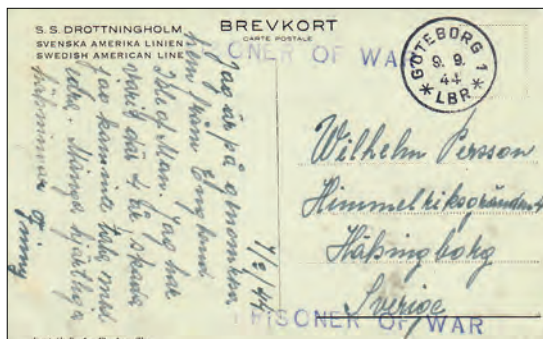 S. S. DROTTNINGHOLM
SVENSKA AMERIKA LINIEN
SWEDISH AMERICAN LINE
BREVKORT
CARTE POSTALE
SONER OF WAR
GÖTEBORG 1
9. 9.
44
LBR
7/9/44
Jag är på genomresa
hem från England
Isle of Man. Jag har
varit där 4 år,
jag kommer tala med
eder. Många hjärtliga
hälsningar
Wilhelm Persson
Himmelriksgränden 4
Hälsingborg
Sverige
RISONER OF WAR